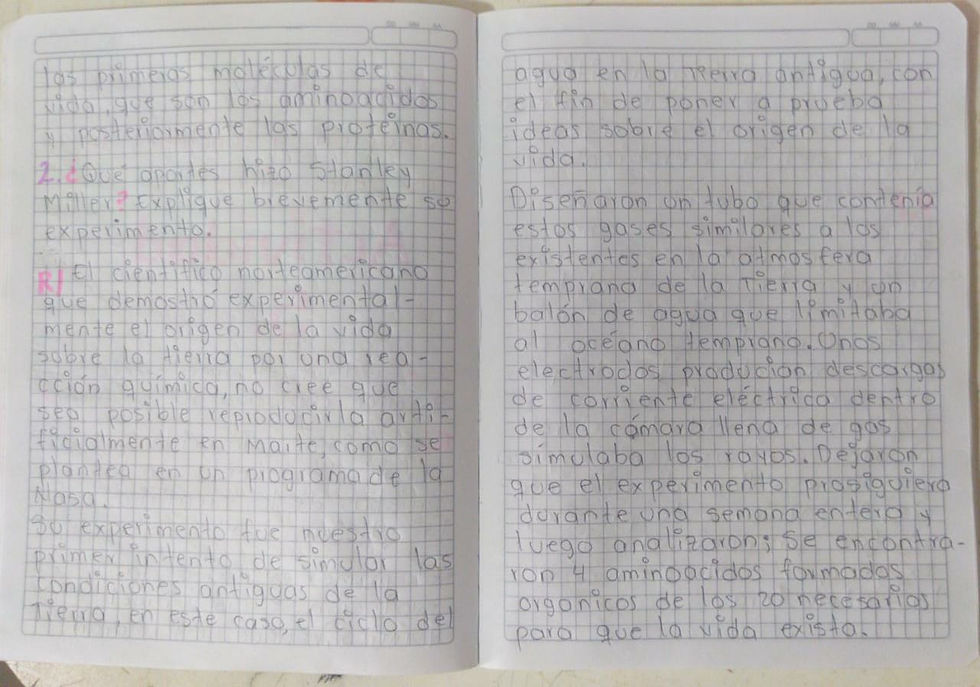 las primeras moléculas de
vida, que son los aminoacidos
y posteriormente las proteínas.
2. ¿Qué aportes hizo Stanley
Miller? Explique brevemente su
experimento.
R/ El cientifico norteamericano
que demostró experimental-
mente el origen de la vida
sobre la tierra por una rea-
cción química, no cree que
sea posible reproducirla arti-
ficialmente en Marte, como se
plantea en un programa de la
Nasa.
Su experimento fue nuestro
primer intento de simular las
condiciones antiguas de la
Tierra, en este caso, el ciclo del
agua en la Tierra antigua, con
el fin de poner a prueba
ideas sobre el origen de la
vida.
Diseñaron un tubo que contenía
estos gases similares a los
existentes en la atmosfera
temprana de la Tierra y un
balón de agua que limitaba
al océano temprano. Unos
electrodos producian descargas
de corriente eléctrica dentro
de la cámara llena de gas
simulaba los rayos. Dejaron
que el experimento prosiguiera
durante una semana entera y
luego analizaron; se encontra-
ron 4 aminoacidos formados
organicos de los 20 necesarios
para que la vida exista.